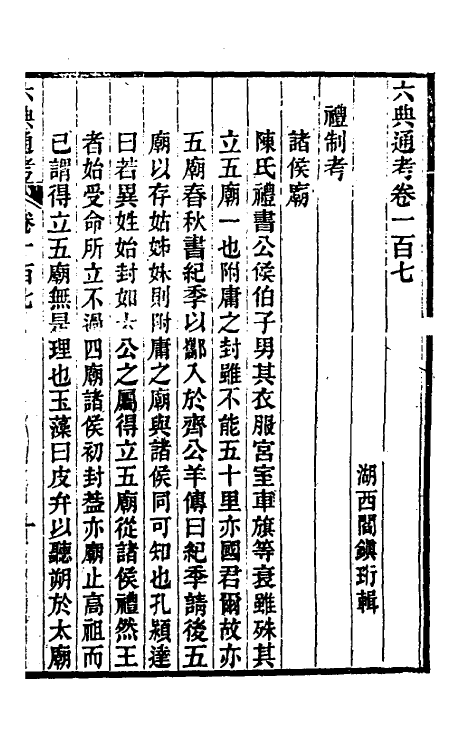 六典通考卷一百七
湖西閻鎮珩輯
禮制考
諸侯廟
陳氏禮書公侯伯子男其衣服宮室車旗等衰雖殊其
立五廟一也附庸之封雖不能五十里亦國君爾故亦
五廟春秋書紀季以酅入於齊公羊傳曰紀季請後五
廟以存姑姊妹則附庸之廟與諸侯同可知也孔穎達
曰若異姓始封如太公之屬得立五廟從諸侯禮然王
者始受命所立不過四廟諸侯初封蓋亦廟止高祖而
已謂得立五廟無是理也玉藻曰皮弁以聽朔於太廟
六典通考 卷一百七 一